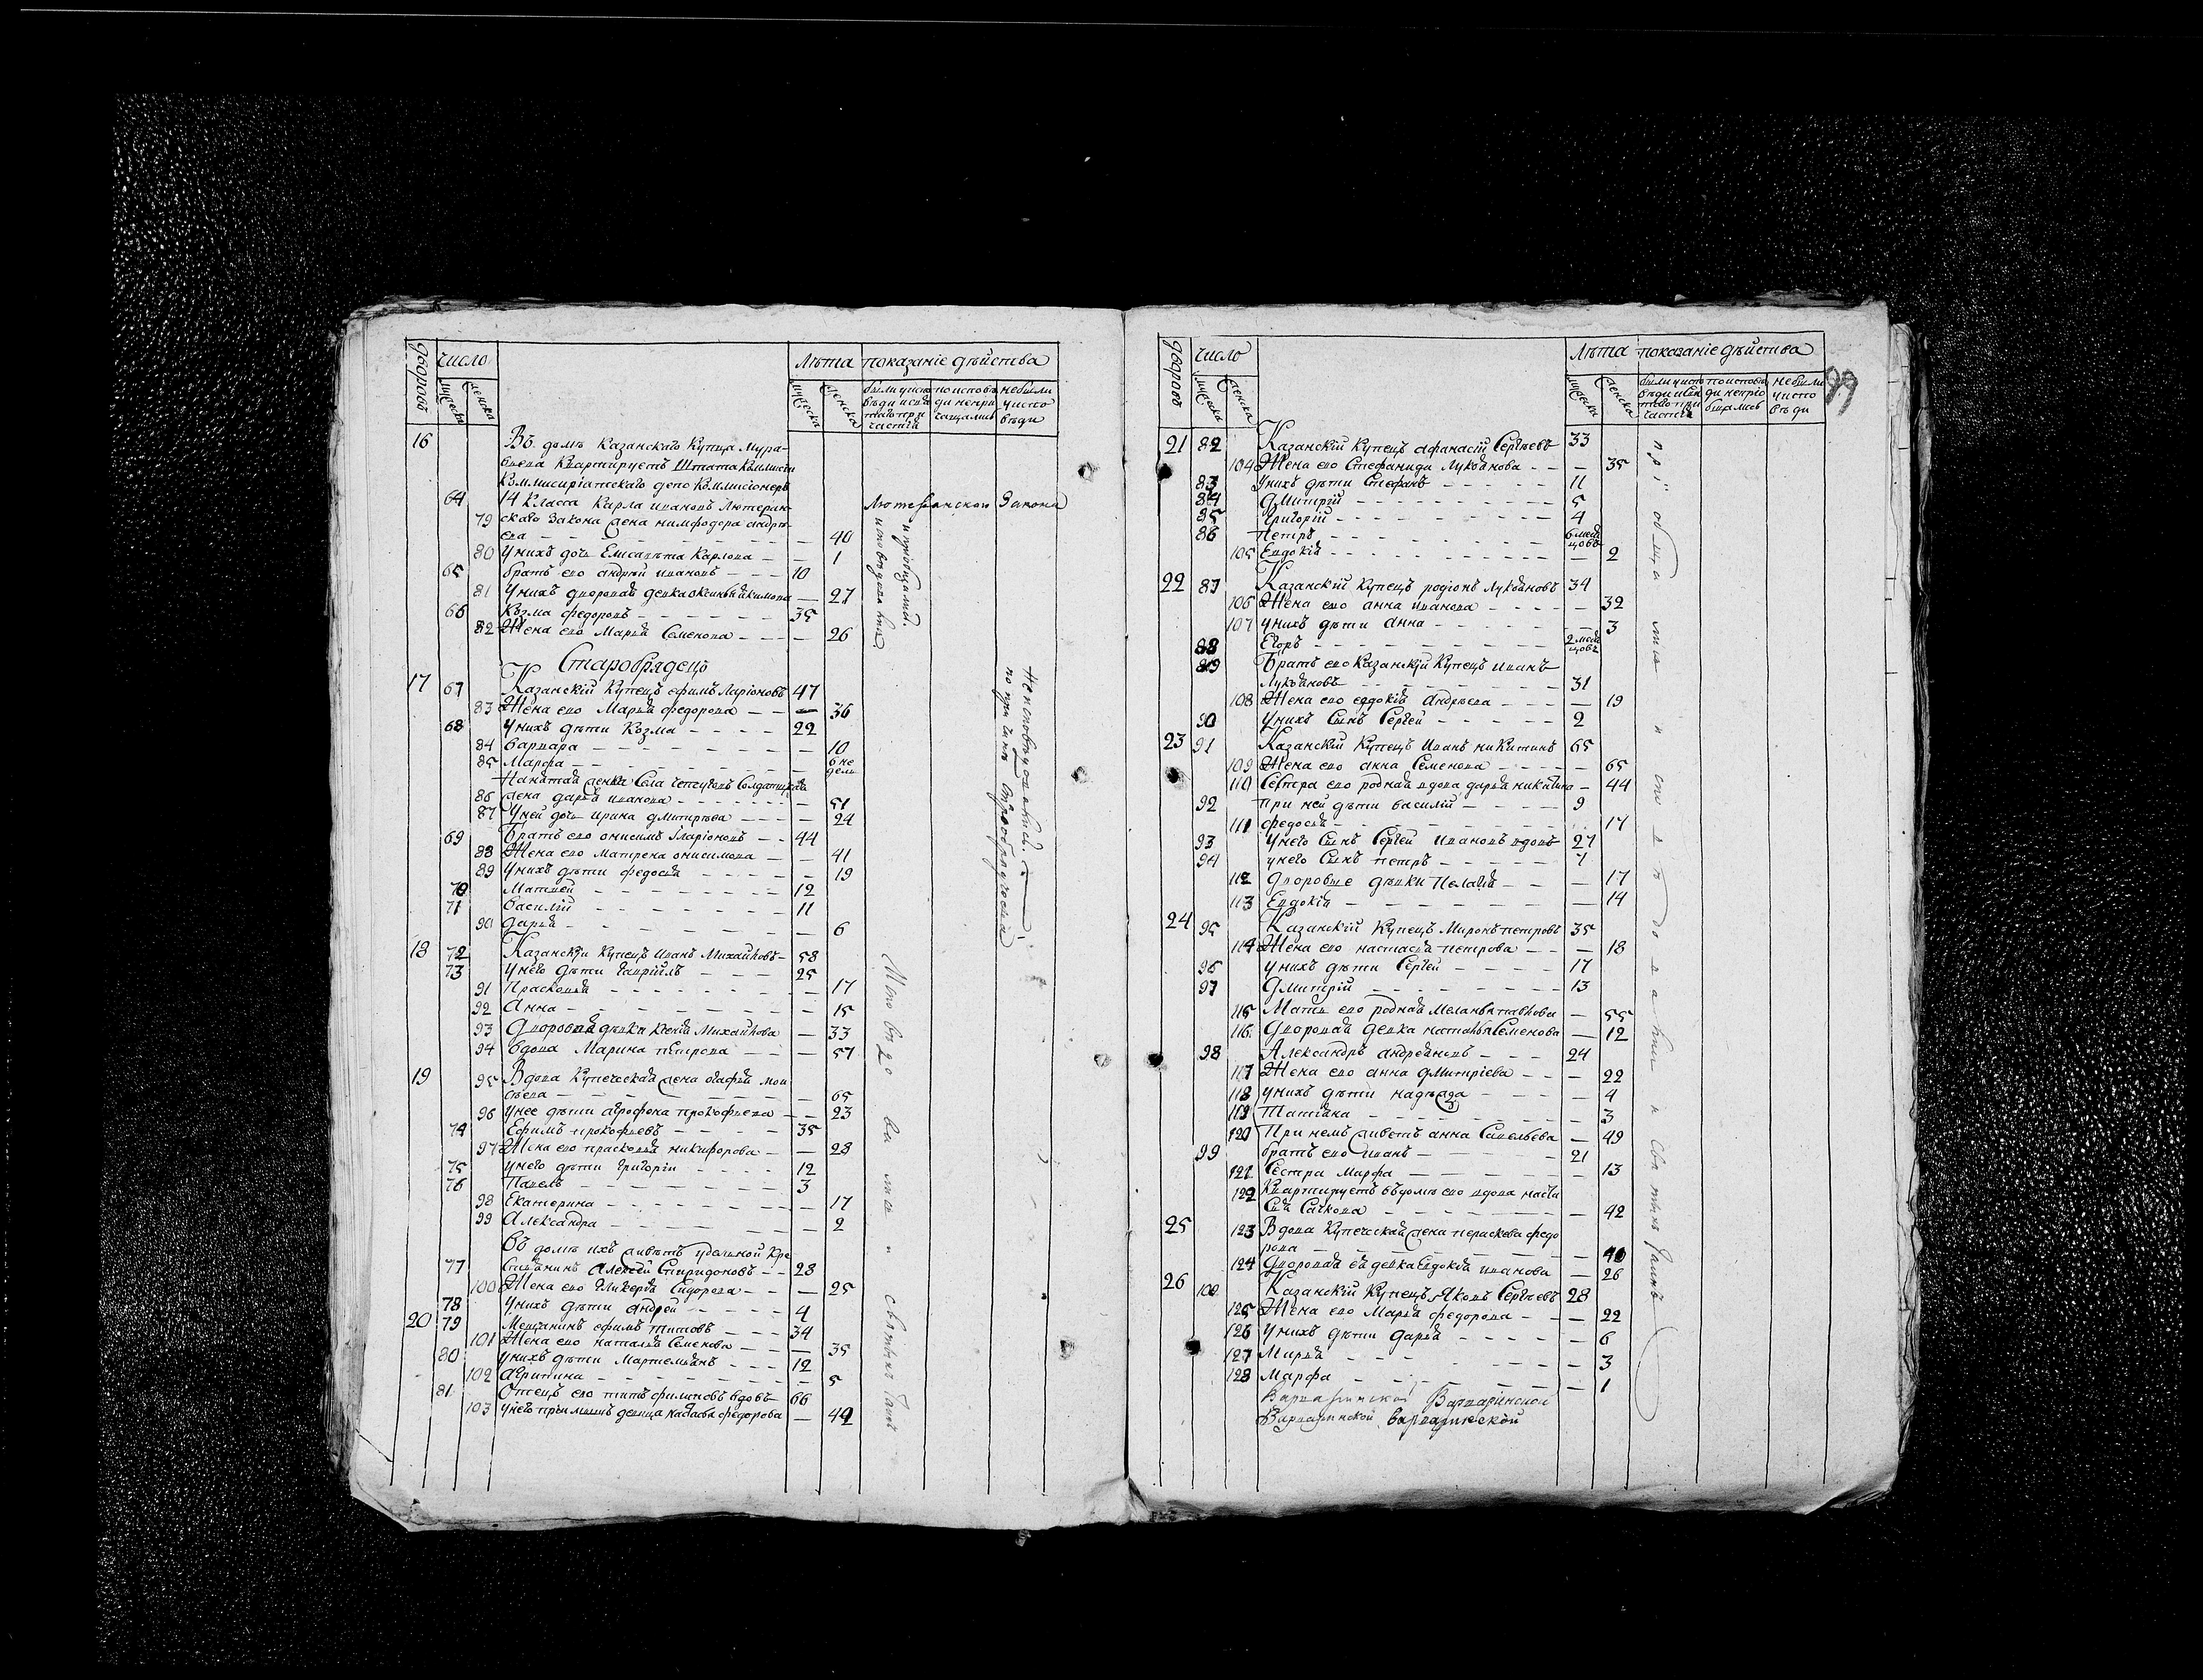 дворовъ число лѣта показаніе дѣйства
мужеска женска мужеска женска
были у исповѣди и свѧтаго причастіѧ
по исповѣди не причащались
не были у исповѣди
16 Въ домѣ Казанскаго Купца Мура-
вьева Квартируетъ Штата Коммисіи
Коммисиріатскаго депо Коммисіонеръ
64 14 Класа Карла Ивановъ Лютеран-
79 скаго Закона жена нимфодора андрѣ-
ева — 40
80 У нихъ дочь Елисавѣта Карлова — 1
65 братъ его андрѣй ивановъ — 10
81 У нихъ дворовая девка — 27
66 Козма федоровъ — 35
82 Жена его Марья Семенова — 26
Лютеранскаго Закона
Старобрядецъ
17 67 Казанскій Купецъ ефимъ Ларіоновъ 47
83 Жена его Марья федорова — 36
68 У нихъ дѣти Козма — 22
84 варвара — 10
85 Марфа — 6 не
дель
Нанятая женка Села Солдатская
86 жена дарья иванова — 51
87 У ней дочь ирина дмитріева — 24
69 Братъ его онисимъ Іларіоновъ — 44
88 Жена его матрена онисимова — 41
89 У нихъ дѣти федосья — 19
70 Матвей — 12
71 Василій — 11
90 Дарья — 6
18 72 Казанскій Купецъ Иванъ Михайловъ — 58
73 У него дѣти Гавріилъ — 25
91 Прасковья — 17
92 Анна — 15
93 Дворовая дѣвка ксенія Михайлова — 33
94 вдова Марина петрова — 57
19 95 Вдова Купеческая жена агафья мои
сеева — 65
96 У нее дѣти агрофена прокофьева — 23
74 Ефимъ прокофьевъ — 35
97 Жена его прасковья никифорова — 28
75 У него дѣти григорій — 12
76 Павелъ — 3
98 Екатерина — 17
99 Александра — 2
въ домѣ ихъ живетъ удельной Кре
77 стьянинъ Алексей Спиридоновъ — 28
100 Жена его гликерья Сидорова — 25
78 У нихъ дѣти андрей — 4
20 79 Мещанинъ ефимъ титовъ — 34
101 Жена его наталья Семенова — 35
80 у нихъ дѣти Мартемьянъ — 12
102 агрипина — 5
81 Отецъ его титъ филиповъ вдовъ 66
103 У него девица федорова — 42
99
дворовъ число лѣта показаніе дѣйства
мужеска женска мужеска женска
не были у исповѣди
21 82 Казанскій Купецъ афанасій Сергѣевъ 33
104 Жена его Стефанида Лукьянова — 35
83 У нихъ дѣти Стефанъ — 11
84 Дмитрій — 5
85 Григорій — 4
86 Петръ — 6 меся
цовъ
105 Евдокія — 2
22 87 Казанскій Купецъ родіонъ Лукьяновъ 34
106 Жена его анна иванова — 32
107 У нихъ дѣти анна — 3
88 Егоръ — 2 меся
цовъ
89 Братъ его Казанскій Купецъ иванъ
Лукьяновъ — 31
108 Жена его евдокія андрѣева — 19
90 У нихъ сынъ Сергей — 2
23 91 Казанскій Купецъ Иванъ никитинъ 65
109 Жена его анна Семенова — 65
110 Сестра его родная вдова дарья никитина — 44
92 при ней дѣти василій — 9
111 федосья — 17
93 У него сынъ Сергей ивановъ вдовъ 27
94 у него сынъ петръ — 7
112 Дворовые дѣвки Пелагія — 17
113 Евдокія — 14
24 95 Казанскій Купецъ Миронъ петровъ 35
114 Жена его настасья петрова — 18
96 У нихъ дѣти Сергей — 17
97 Дмитрій — 13
115 Мать его родная Меланья павлова — 55
116 Дворовая девка наталья Семенова — 12
98 Александръ андреяновъ — 24
117 Жена его анна дмитріева — 22
118 У нихъ дѣти надѣжда — 4
119 Татіана — 3
120 При немъ живетъ анна Савельева — 49
99 братъ его иванъ — 21
121 Сестра марфа — 13
122 Квартируетъ въ домѣ его вдова наста
сья Сачкова — 42
25 123 Вдова Купеческая жена параскева федо
рова — 40
124 Дворовая ея девка Евдокія иванова — 26
26 100 Казанскій Купецъ Яковъ Сергѣевъ 28
125 Жена его Марья федорова — 22
126 У нихъ дѣти Дарья — 6
127 Марья — 3
128 Марфа — 1
Варваринской Варваринской
Варваринской Варваринской